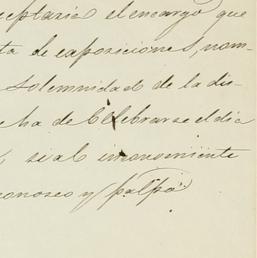 aceptaria el encargo que
ta de exposiciones, nom-
solemnidad de la dis-
cha de celebrarse el dia
si al inconveniente
conosco y palpo